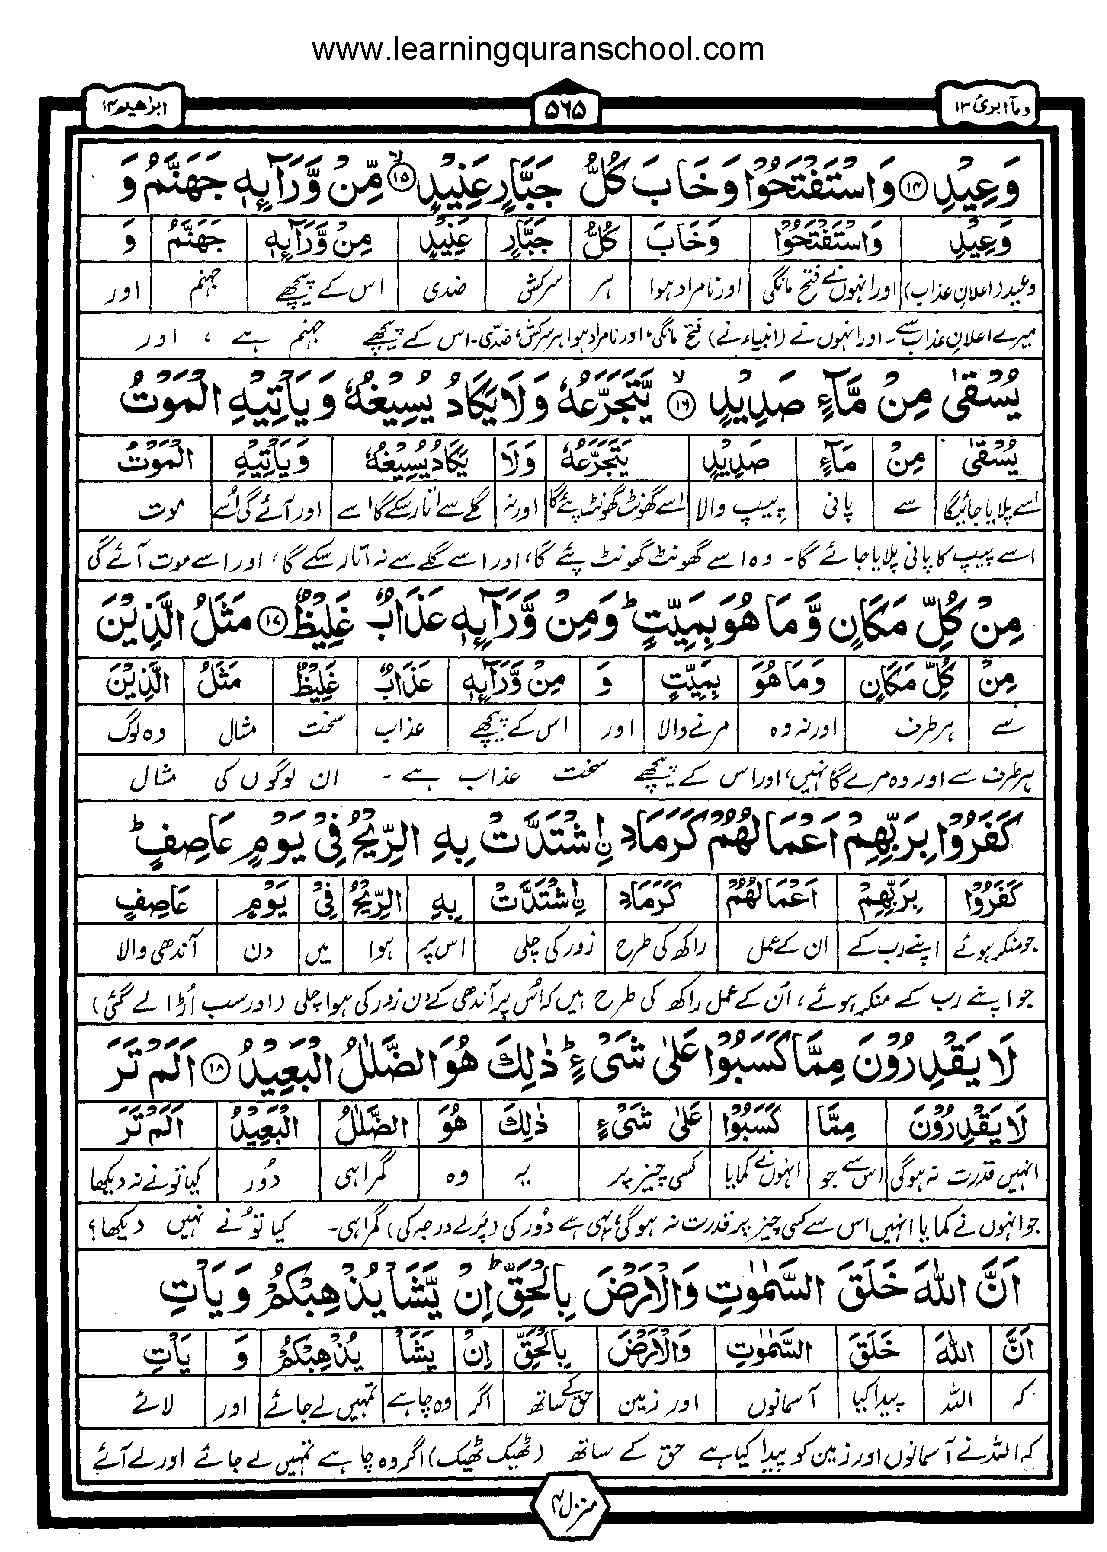 www.learningquranschool.com
ومآ ابریٔ ۱۳
۵۶۵
ابراھیم ۱۴
وَعِیْدِ ﴿۱۴﴾ وَاسْتَفْتَحُوْا وَخَابَ كُلُّ جَبَّارٍ عَنِیْدٍ ﴿۱۵﴾ۙ مِّنْ وَّرَآىِٕهٖ جَهَنَّمُ وَ
وَعِیْدِ وَاسْتَفْتَحُوْا وَخَابَ كُلُّ جَبَّارٍ عَنِیْدٍ مِنْ وَّرَآىِٕهٖ جَهَنَّمُ وَ
وعید (اعلانِ عذاب) اور انہوں نے فتح مانگی اور نامراد ہوا ہر سرکش ضدی اس کے پیچھے جہنم اور
میرے اعلانِ عذاب سے۔ اور انہوں نے (انبیاء نے) فتح مانگی، اور نامراد ہوا ہر سرکش، ضدّی۔ اس کے پیچھے جہنم ہے ، اور
یُسْقٰی مِنْ مَّآءٍ صَدِیْدٍ ﴿۱۶﴾ۙ یَّتَجَرَّعُهٗ وَلَا یَكَادُ یُسِیْغُهٗ وَیَاْتِیْهِ الْمَوْتُ
یُسْقٰی مِنْ مَآءٍ صَدِیْدٍ یَتَجَرَّعُهٗ وَلَا یَكَادُ یُسِیْغُهٗ وَیَاْتِیْهِ الْمَوْتُ
اسے پلایا جائیگا سے پانی پیپ والا اسے گھونٹ گھونٹ پئے گا اور نہ گلے سے اتار سکے گا اسے اور آئے گی اُسے موت
اسے پیپ کا پانی پلایا جائے گا۔ وہ اسے گھونٹ گھونٹ پئے گا، اور اسے گلے سے نہ اتار سکے گا، اور اسے موت آئے گی
مِنْ كُلِّ مَكَانٍ وَّمَا هُوَ بِمَیِّتٍ ؕ وَمِنْ وَّرَآىِٕهٖ عَذَابٌ غَلِیْظٌ ﴿۱۷﴾ مَثَلُ الَّذِیْنَ
مِنْ كُلِّ مَكَانٍ وَمَا هُوَ بِمَیِّتٍ وَ مِنْ وَّرَآىِٕهٖ عَذَابٌ غَلِیْظٌ مَثَلُ الَّذِیْنَ
سے ہر طرف اور نہ وہ مرنے والا اور اس کے پیچھے عذاب سخت مثال وہ لوگ
ہر طرف سے اور وہ مرے گا نہیں، اور اس کے پیچھے سخت عذاب ہے ۔ ان لوگوں کی مثال
كَفَرُوْا بِرَبِّهِمْ اَعْمَالُهُمْ كَرَمَادِ ِ۟اشْتَدَّتْ بِهِ الرِّیْحُ فِیْ یَوْمٍ عَاصِفٍ ؕ
كَفَرُوْا بِرَبِّهِمْ اَعْمَالُهُمْ كَرَمَادِ ِ۟اشْتَدَّتْ بِهِ الرِّیْحُ فِیْ یَوْمٍ عَاصِفٍ
جو منکر ہوئے اپنے رب کے ان کے عمل راکھ کی طرح زور کی چلی اس پر ہوا میں دن آندھی والا
جو اپنے رب کے منکر ہوئے، اُن کے عمل راکھ کی طرح ہیں کہ اُس پر آندھی کے دن زور کی ہوا چلی (اور سب اُڑا لے گئی)
لَا یَقْدِرُوْنَ مِمَّا كَسَبُوْا عَلٰی شَیْءٍ ؕ ذٰلِكَ هُوَ الضَّلٰلُ الْبَعِیْدُ ﴿۱۸﴾ اَلَمْ تَرَ
لَا یَقْدِرُوْنَ مِمَّا كَسَبُوْا عَلٰی شَیْءٍ ذٰلِكَ هُوَ الضَّلٰلُ الْبَعِیْدُ اَلَمْ تَرَ
انہیں قدرت نہ ہوگی اس سے جو انہوں نے کمایا کسی چیز پر یہ وہ گمراہی دُور کیا تو نے نہ دیکھا
جو انہوں نے کمایا انہیں اس سے کسی چیز پر قدرت نہ ہوگی، یہی ہے دُور کی (پرلے درجہ کی) گمراہی۔ کیا تُو نے نہیں دیکھا؟
اَنَّ اللّٰهَ خَلَقَ السَّمٰوٰتِ وَالْاَرْضَ بِالْحَقِّ ؕ اِنْ یَّشَاْ یُذْهِبْكُمْ وَیَاْتِ
اَنَّ اللّٰهَ خَلَقَ السَّمٰوٰتِ وَالْاَرْضَ بِالْحَقِّ اِنْ یَشَاْ یُذْهِبْكُمْ وَ یَاْتِ
کہ اللہ پیدا کیا آسمانوں اور زمین حق کے ساتھ اگر وہ چاہے تمہیں لے جائے اور لائے
کہ اللہ نے آسمانوں اور زمین کو پیدا کیا ہے حق کے ساتھ (ٹھیک ٹھیک) اگر وہ چاہے تمہیں لے جائے اور لے آئے
منزل ۳